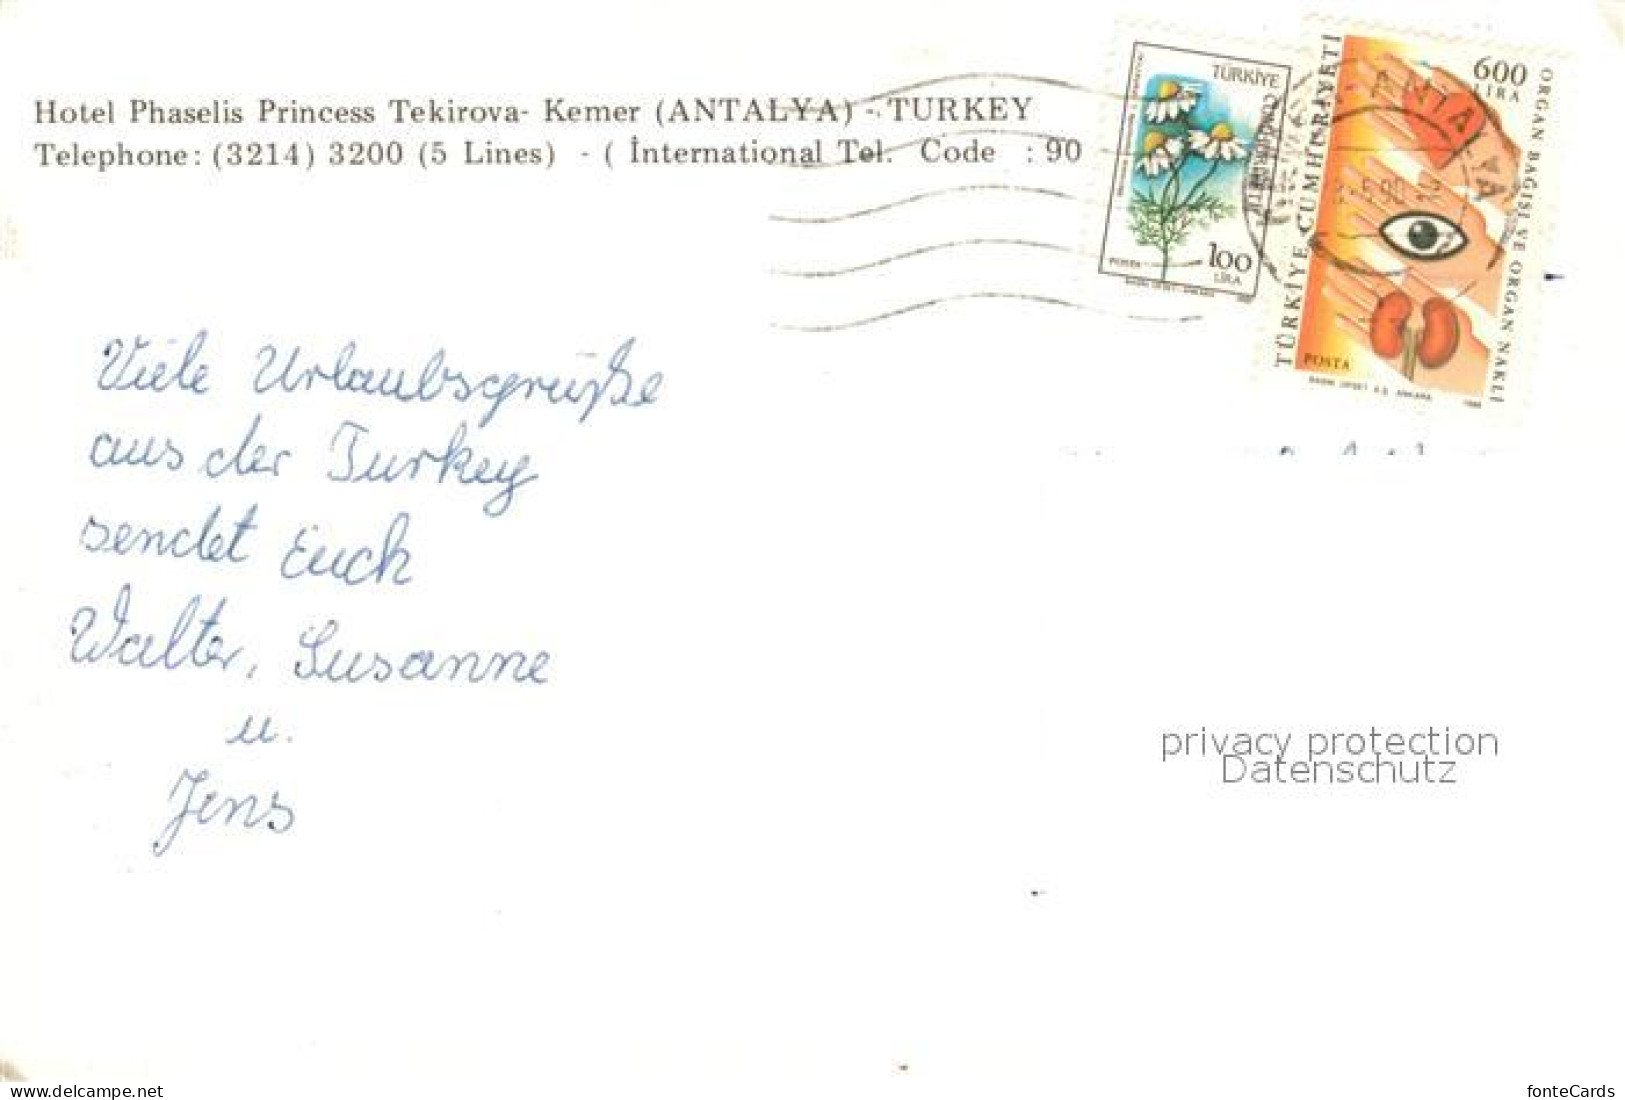 Hotel Phaselis Princess Tekirova- Kemer (ANTALYA) - TURKEY
Telephone: (3214) 3200 (5 Lines) - ( İnternational Tel. Code : 90
TÜRKİYE CUMHURİYETİ
POSTA
100
LİRA
TÜRKİYE CUMHURİYETİ
600
LİRA
ORGAN BAĞIŞI VE ORGAN NAKLİ
POSTA
ANTALYA
5.90
Viele Urlaubsgrüße
aus der Turkey
sendet Euch
Walter, Susanne
u.
Jens
privacy protection
Datenschutz
www.delcampe.net
fonteCards